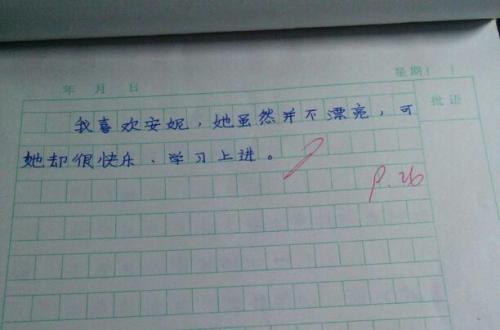 年 月 日 星期( )
批语
我喜欢安妮，她虽然并不漂亮，可
她却很快乐、学习上进。
P.26